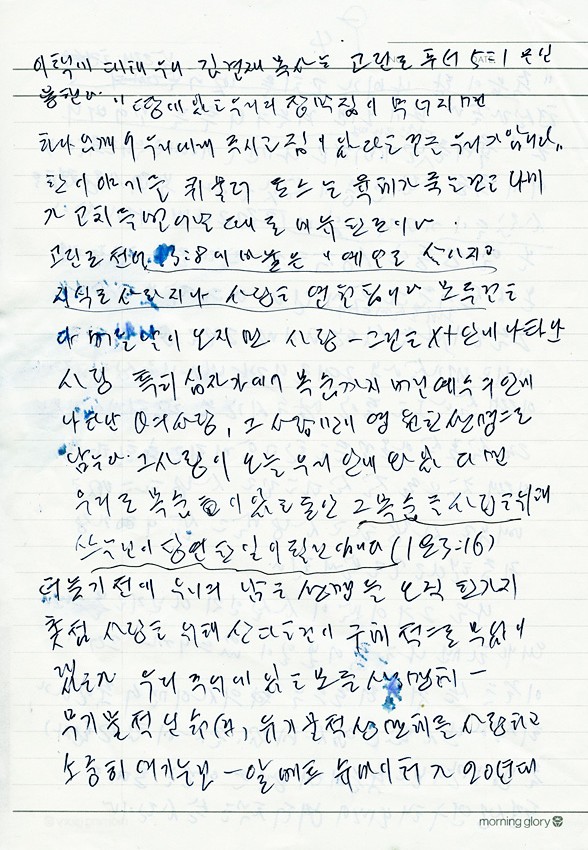 이 책에 대해 우리 김경재 목사는 고린도 후서 5:1 본인
용한다. "땅에 있는 우리의 장막집이 무너지면
하나님께서 우리에게 주시는 집이 있다는 것은 우리가 압니다"
한 이야기를 퀴블러 로스는 육체가 죽는 것은 나비
가 고치를 벗어나
고린도 전서 13:8의 말씀은 "예언도 사라지고
지식도 사라지나 사랑은 영원합니다 모든 것은
다 버릴 날이 오지만 사랑 - 그것은 X+ 안에 나타난
사랑 특히 십자가에서 목숨까지 버린 예수의 안에
나타난 하나님의 사랑, 그 사랑 영원한 생명으로
남는다. 그 사랑이 오늘 우리 안에 와 있다면
우리도 목숨이 있는 동안 그 목숨을 사랑을 위해
쓰는 것이 당연한 일이 될 것이다 (1요 3:16)
더 늙기 전에 우리의 남은 생명을 오직 한가지
촛점 사랑을 위해 산다는 것이 구체적으로 무엇이
겠는가 우리 주위에 있는 모든 생명체 -
무기물적인 유기물적 생명체를 사랑하고
소중히 여기는 - 알베르트 슈바이처가 20년대
morning glory
DATE